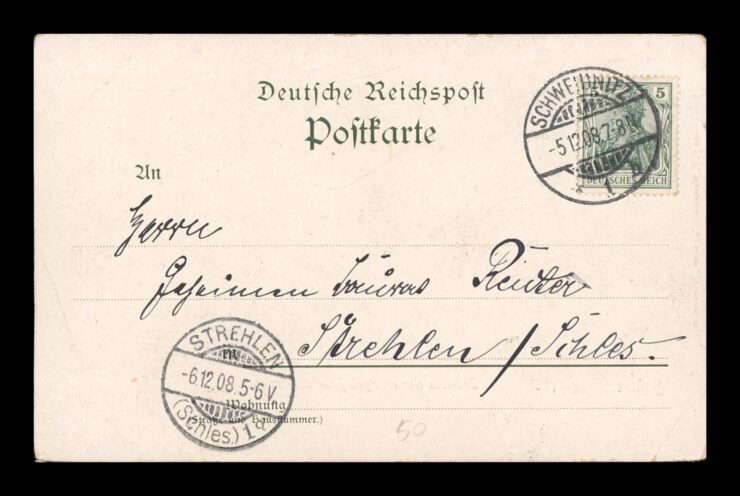 Deutsche Reichspost
Postkarte
SCHWEIDNITZ
-5.12.08.7-8
1
5
DEUTSCHES REICH
An
Herrn
Geheimen Baurat Reuter
Strehlen / Schles.
STREHLEN
in
-6.12.08 5-6V
(Schles.) 1
Wohnung
(Straße und Hausnummer.)
50